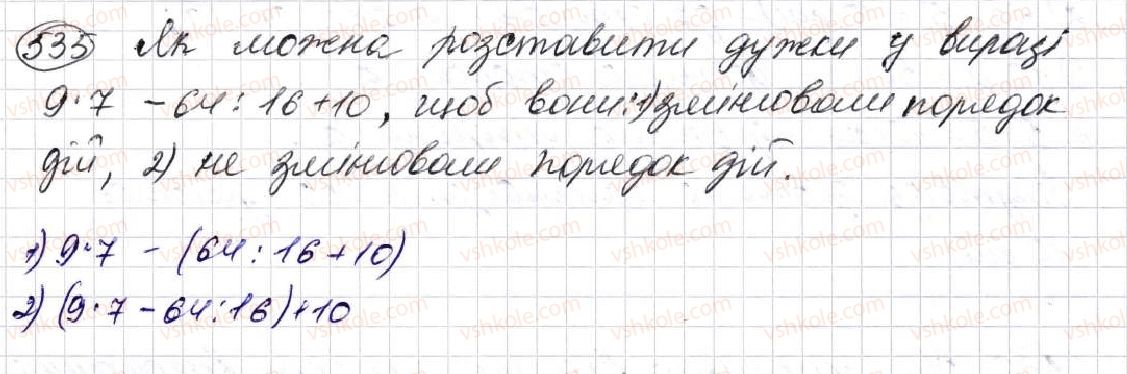 535 Як можна розставити дужки у виразі
9·7 - 64 : 16 + 10, щоб вони: 1) змінювали порядок
дій, 2) не змінювали порядок дій.
1) 9·7 - (64 : 16 + 10)
2) (9·7 - 64 : 16) + 10